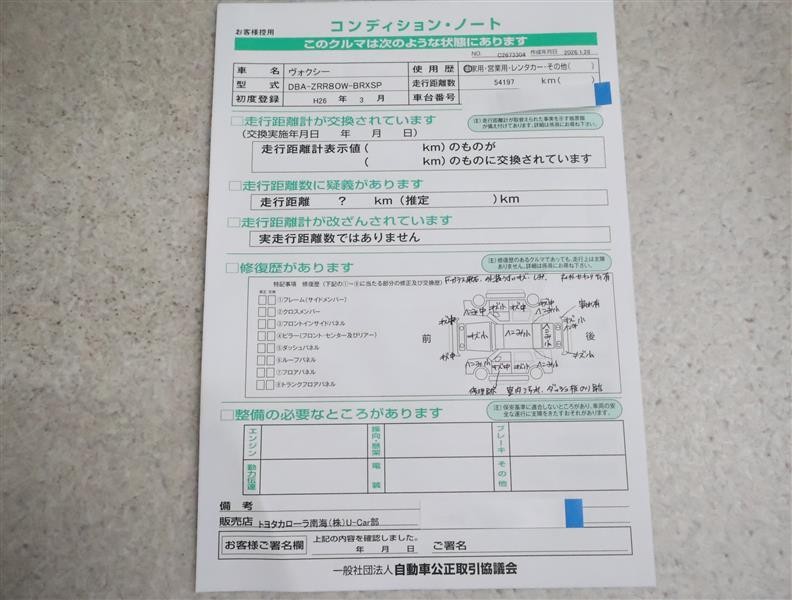 お客様控用
コンディション・ノート
このクルマは次のような状態にあります
NO. C2673304 作成年月日 2026.1.28
車名 ヴォクシー 使用歴 自家用・営業用・レンタカー・その他( )
型式 DBA-ZRR80W-BRXSP 走行距離数 54197 km( )
初度登録 H26 年 3 月 車台番号
□走行距離計が交換されています
(注)走行距離計が取替えられた事実を示す指標類が備え付けてあります。詳細は係員にお尋ね下さい。
(交換実施年月日 年 月 日)
走行距離計表示値( km)のものが
( km)のものに交換されています
□走行距離数に疑義があります
走行距離 ? km(推定 )km
□走行距離計が改ざんされています
実走行距離数ではありません
□修復歴があります
(注)修復歴のあるクルマであっても、走行上は支障ありません。詳細は係員にお尋ね下さい。
特記事項 修復歴(下記の①〜⑧に当たる部分の修正及び交換歴)
修正 交換
①フレーム(サイドメンバー)
②クロスメンバー
③フロントインサイドパネル
④ピラー(フロント・センター及びリアー)
⑤ダッシュパネル
⑥ルーフパネル
⑦フロアパネル
⑧トランクフロアパネル
前
後
□整備の必要なところがあります
(注)保安基準に適合しないところがあり、車両の安全な運行に支障をきたすおそれがあります。
エンジン 操向・懸架 ブレーキ
動力伝達 電装 その他
備考
販売店 トヨタカローラ南海(株)U-Car部
お客様ご署名欄 上記の内容を確認しました。
年 月 日 ご署名
一般社団法人 自動車公正取引協議会